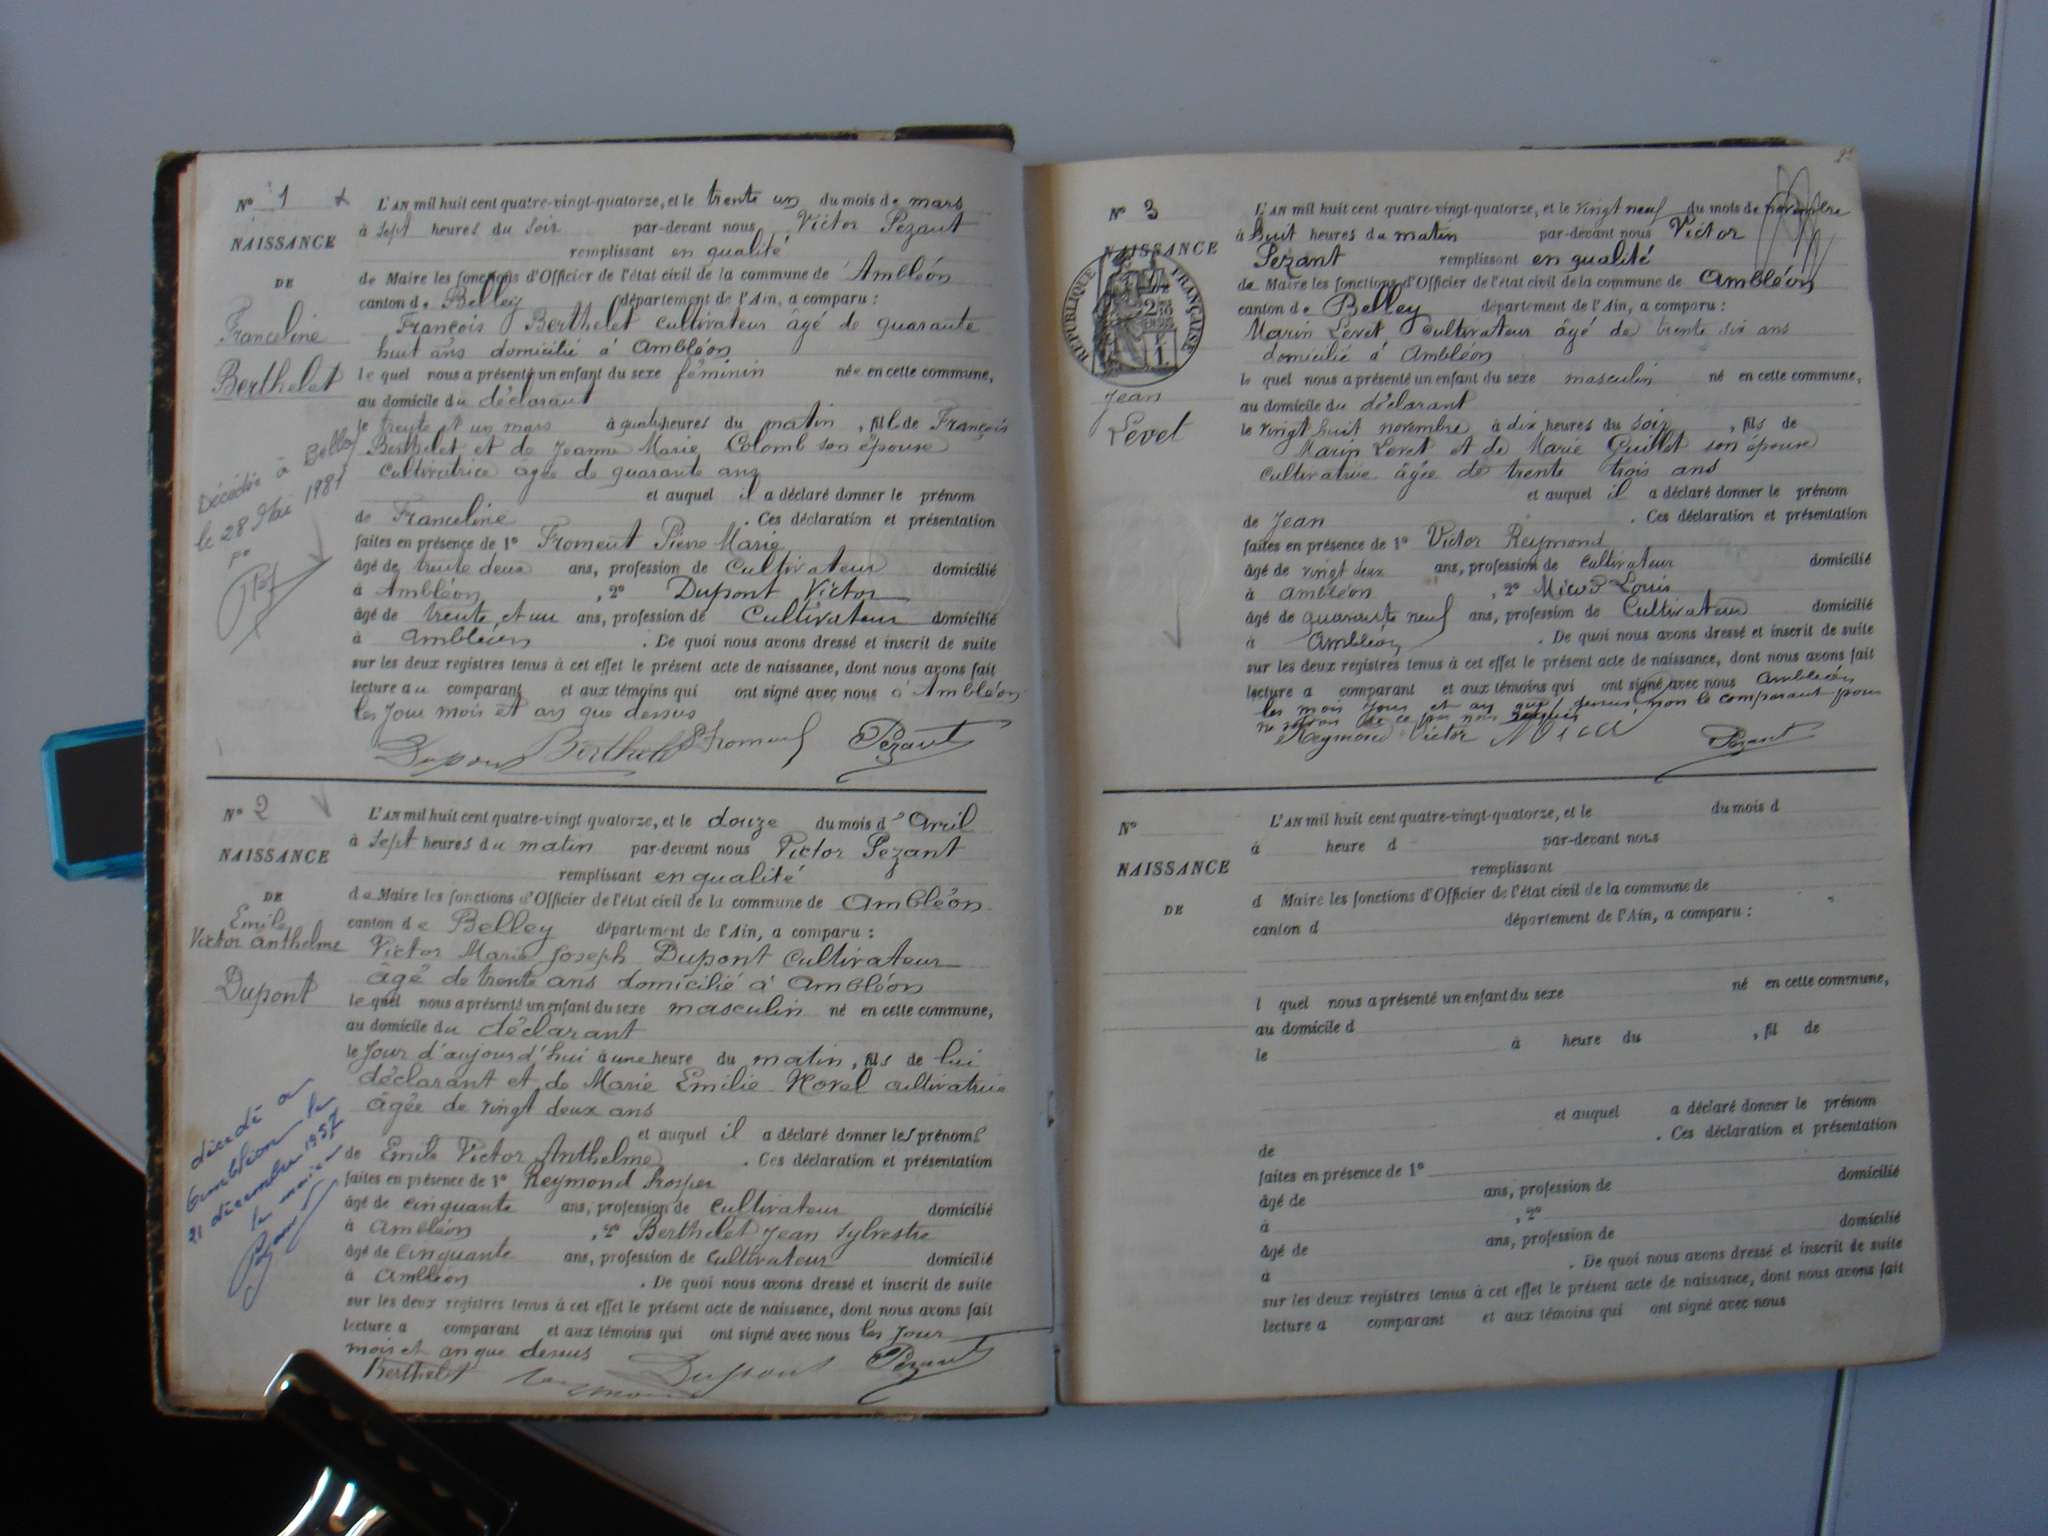 N° 1
NAISSANCE
DE
Franceline
Berthelet
Décédée à Belley
le 28 Mai 1981
L'AN mil huit cent quatre-vingt-quatorze, et le trente un du mois de mars
à sept heures du soir par-devant nous Victor Pezant
remplissant en qualité
de Maire les fonctions d'Officier de l'état civil de la commune de Ambléon
canton de Belley département de l'Ain, a comparu :
François Berthelet cultivateur âgé de quarante
huit ans domicilié à Ambléon
lequel nous a présenté un enfant du sexe féminin née en cette commune,
au domicile du déclarant
le trente et un mars à quatre heures du matin, fille de François
Berthelet et de Jeanne Marie Colomb son épouse
cultivatrice âgée de quarante ans
et auquel il a déclaré donner le prénom
de Franceline . Ces déclaration et présentation
faites en présence de 1° Froment Pierre Marie
âgé de trente deux ans, profession de cultivateur domicilié
à Ambléon , 2° Dupont Victor
âgé de trente et un ans, profession de Cultivateur domicilié
à Ambléon . De quoi nous avons dressé et inscrit de suite
sur les deux registres tenus à cet effet le présent acte de naissance, dont nous avons fait
lecture au comparant et aux témoins qui ont signé avec nous à Ambléon
les jour mois et an que dessus
Dupont Berthelet Froment Pezant
N° 2
NAISSANCE
DE
Emile
Victor Anthelme
Dupont
décédé a
Ambléon le
21 décembre 1957
le maire
L'AN mil huit cent quatre-vingt quatorze, et le douze du mois d'Avril
à sept heures du matin par-devant nous Victor Pezant
remplissant en qualité
de Maire les fonctions d'Officier de l'état civil de la commune de Ambléon
canton de Belley département de l'Ain, a comparu :
Victor Marie Joseph Dupont cultivateur
âgé de trente ans domicilié à Ambléon
lequel nous a présenté un enfant du sexe masculin né en cette commune,
au domicile du déclarant
le jour d'aujourd'hui à une heure du matin, fils de lui
déclarant et de Marie Emilie cultivatrice
âgée de vingt deux ans
et auquel il a déclaré donner les prénoms
de Emile Victor Anthelme . Ces déclaration et présentation
faites en présence de 1° Reymond Prosper
âgé de cinquante ans, profession de cultivateur domicilié
à Ambléon , 2° Berthelet Jean Sylvestre
âgé de cinquante ans, profession de cultivateur domicilié
à Ambléon . De quoi nous avons dressé et inscrit de suite
sur les deux registres tenus à cet effet le présent acte de naissance, dont nous avons fait
lecture a comparant et aux témoins qui ont signé avec nous les jour
mois et an que dessus
Berthelet Reymond Dupont Pezant
N° 3
NAISSANCE
RÉPUBLIQUE FRANÇAISE
Jean
Levet
L'AN mil huit cent quatre-vingt-quatorze, et le vingt neuf du mois de novembre
à huit heures du matin par-devant nous Victor
Pezant remplissant en qualité
de Maire les fonctions d'Officier de l'état civil de la commune de Ambléon
canton de Belley département de l'Ain, a comparu :
Marin Levet cultivateur âgé de trente six ans
domicilié à Ambléon
lequel nous a présenté un enfant du sexe masculin né en cette commune,
au domicile du déclarant
le vingt huit novembre à dix heures du soir, fils de
Marin Levet et de Marie Guillet son épouse
cultivatrice âgée de trente trois ans
et auquel il a déclaré donner le prénom
de Jean . Ces déclaration et présentation
faites en présence de 1° Victor Reymond
âgé de vingt deux ans, profession de cultivateur domicilié
à Ambléon , 2° Louis
âgé de quarante neuf ans, profession de Cultivateur domicilié
à Ambléon . De quoi nous avons dressé et inscrit de suite
sur les deux registres tenus à cet effet le présent acte de naissance, dont nous avons fait
lecture a comparant et aux témoins qui ont signé avec nous Ambléon
les mois jour et an que dessus, non le comparant pour
ne savoir de ce par nous requis
Reymond Victor Pezant
N°
NAISSANCE
DE
L'AN mil huit cent quatre-vingt-quatorze, et le du mois d
à heure d par-devant nous
remplissant
d Maire les fonctions d'Officier de l'état civil de la commune de
canton d département de l'Ain, a comparu :
l quel nous a présenté un enfant du sexe né en cette commune,
au domicile d
le à heure du , fil de
et auquel a déclaré donner le prénom
de . Ces déclaration et présentation
faites en présence de 1°
âgé de ans, profession de domicilié
à , 2°
âgé de ans, profession de domicilié
à . De quoi nous avons dressé et inscrit de suite
sur les deux registres tenus à cet effet le présent acte de naissance, dont nous avons fait
lecture a comparant et aux témoins qui ont signé avec nous